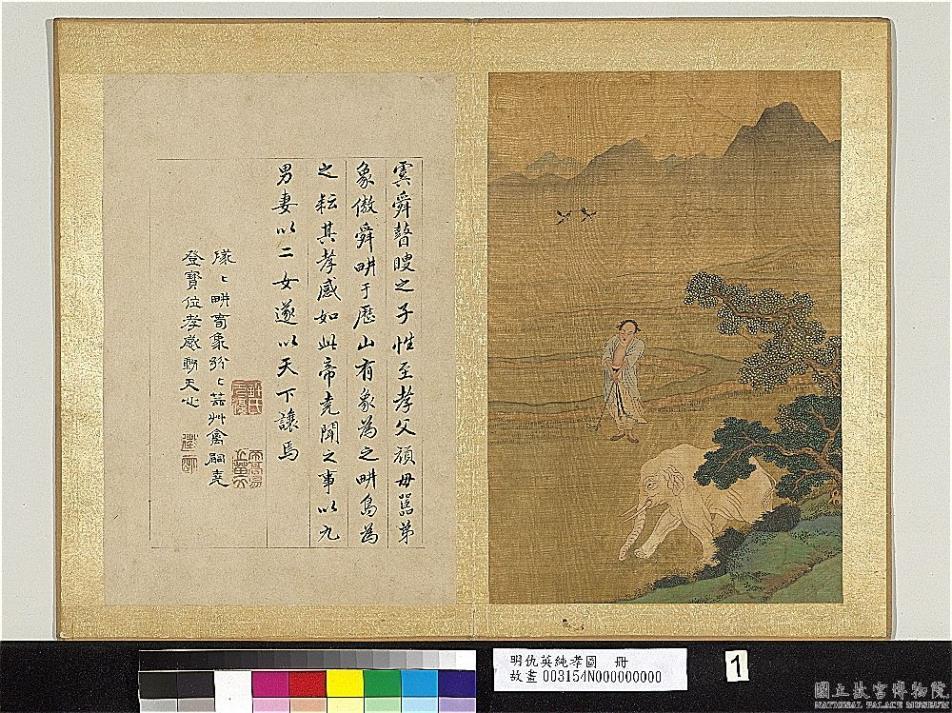 虞舜瞽瞍之子性至孝父頑母嚚弟
象傲舜畊于歷山有象為之畊鳥為
之耘其孝感如此帝堯聞之事以九
男妻以二女遂以天下讓焉
隊〻畊畬象紛〻耘艸禽嗣堯
登寶位孝感動天心
明仇英純孝圖　冊
故畫003154N000000000
1
國立故宮博物院
NATIONAL PALACE MUSEUM